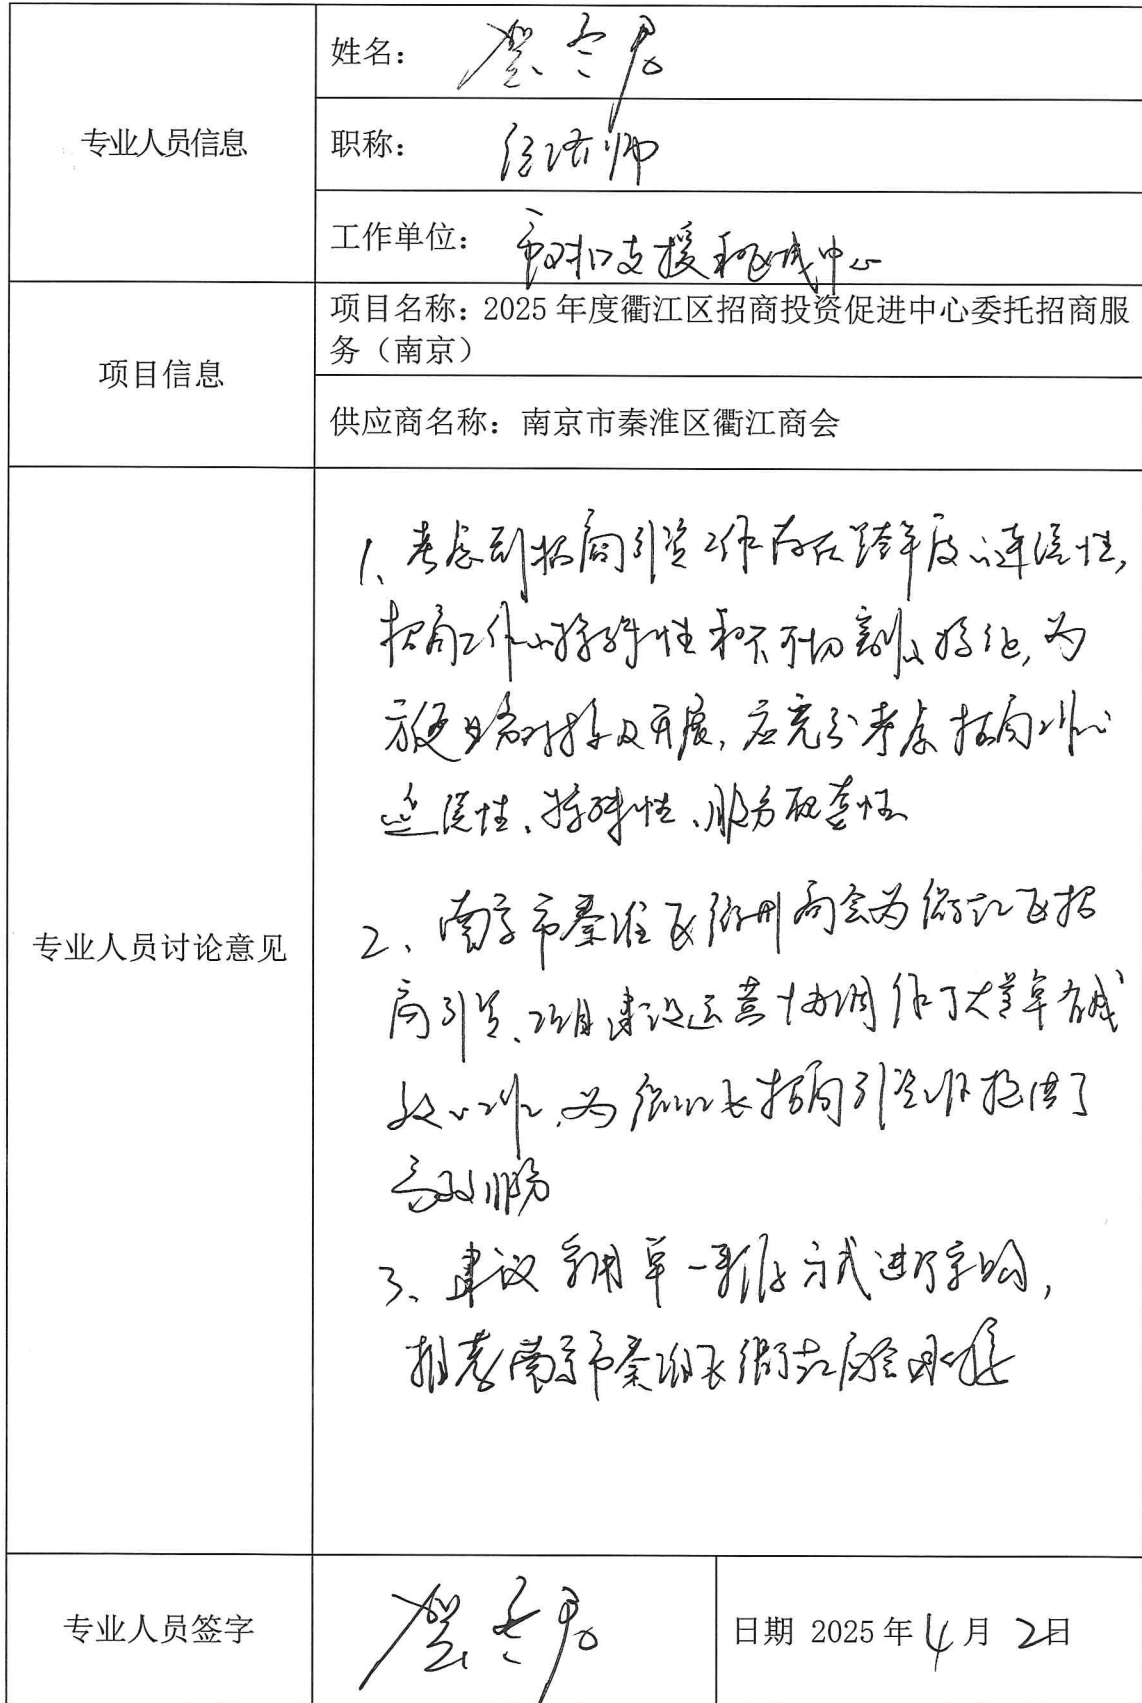 专业人员信息
姓名：
职称：经济师
工作单位：对口支援和区域中心
项目信息
项目名称：2025 年度衢江区招商投资促进中心委托招商服
务（南京）
供应商名称：南京市秦淮区衢江商会
专业人员讨论意见
1、考虑到招商引资工作存在跨年度的连续性，
招商工作的特殊性和不可切割的特征，为
方便业务对接及开展，应充分考虑招商工作的
连续性、特殊性、服务配套性
2、南京市秦淮区衢州商会为衢江区招
商引资、项目建设运营协调作了大量卓有成
效的工作，为衢江区招商引资工作提供了
高效服务
3、建议采用单一来源方式进行采购，
推荐南京市秦淮区衢江商会承接
专业人员签字
日期 2025 年 4 月 2日